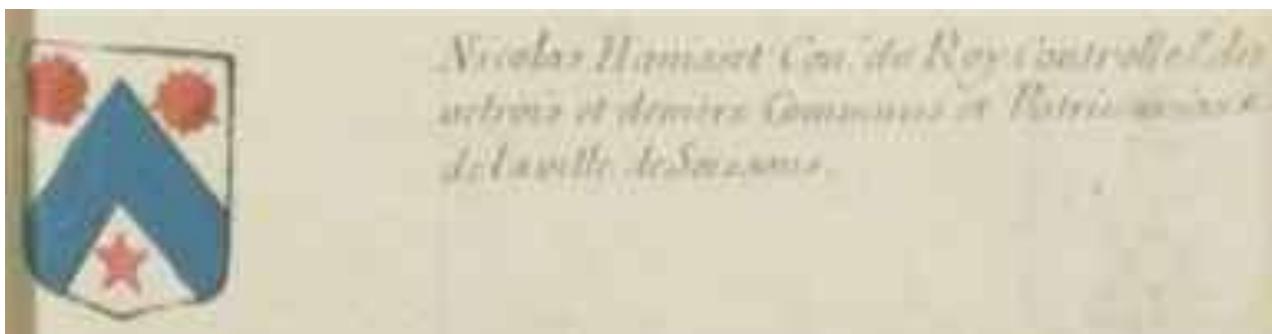 Nicolas Hamant Con.er du Roy Controlleur des
octrois et deniers Communs et Patrimoniaux
de la ville de Soissons.